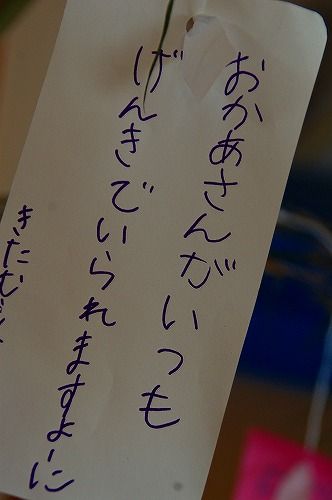 おかあさんがいつも
げんきでいられますよーに
きたむ